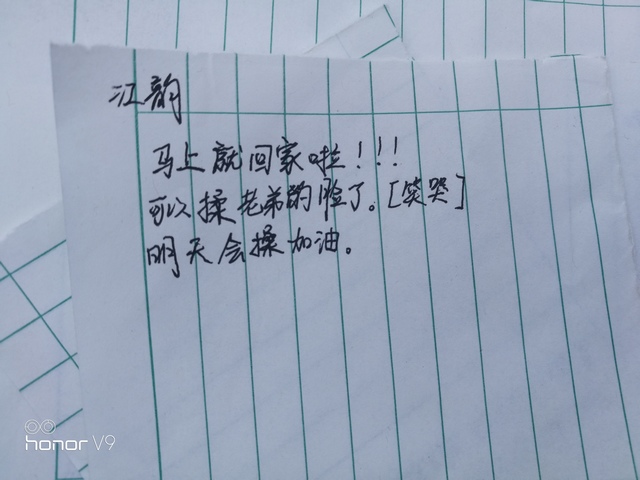 江韵
马上就回家啦!!!
可以揉老弟的脸了。[笑哭]
明天会操加油。
honor V9